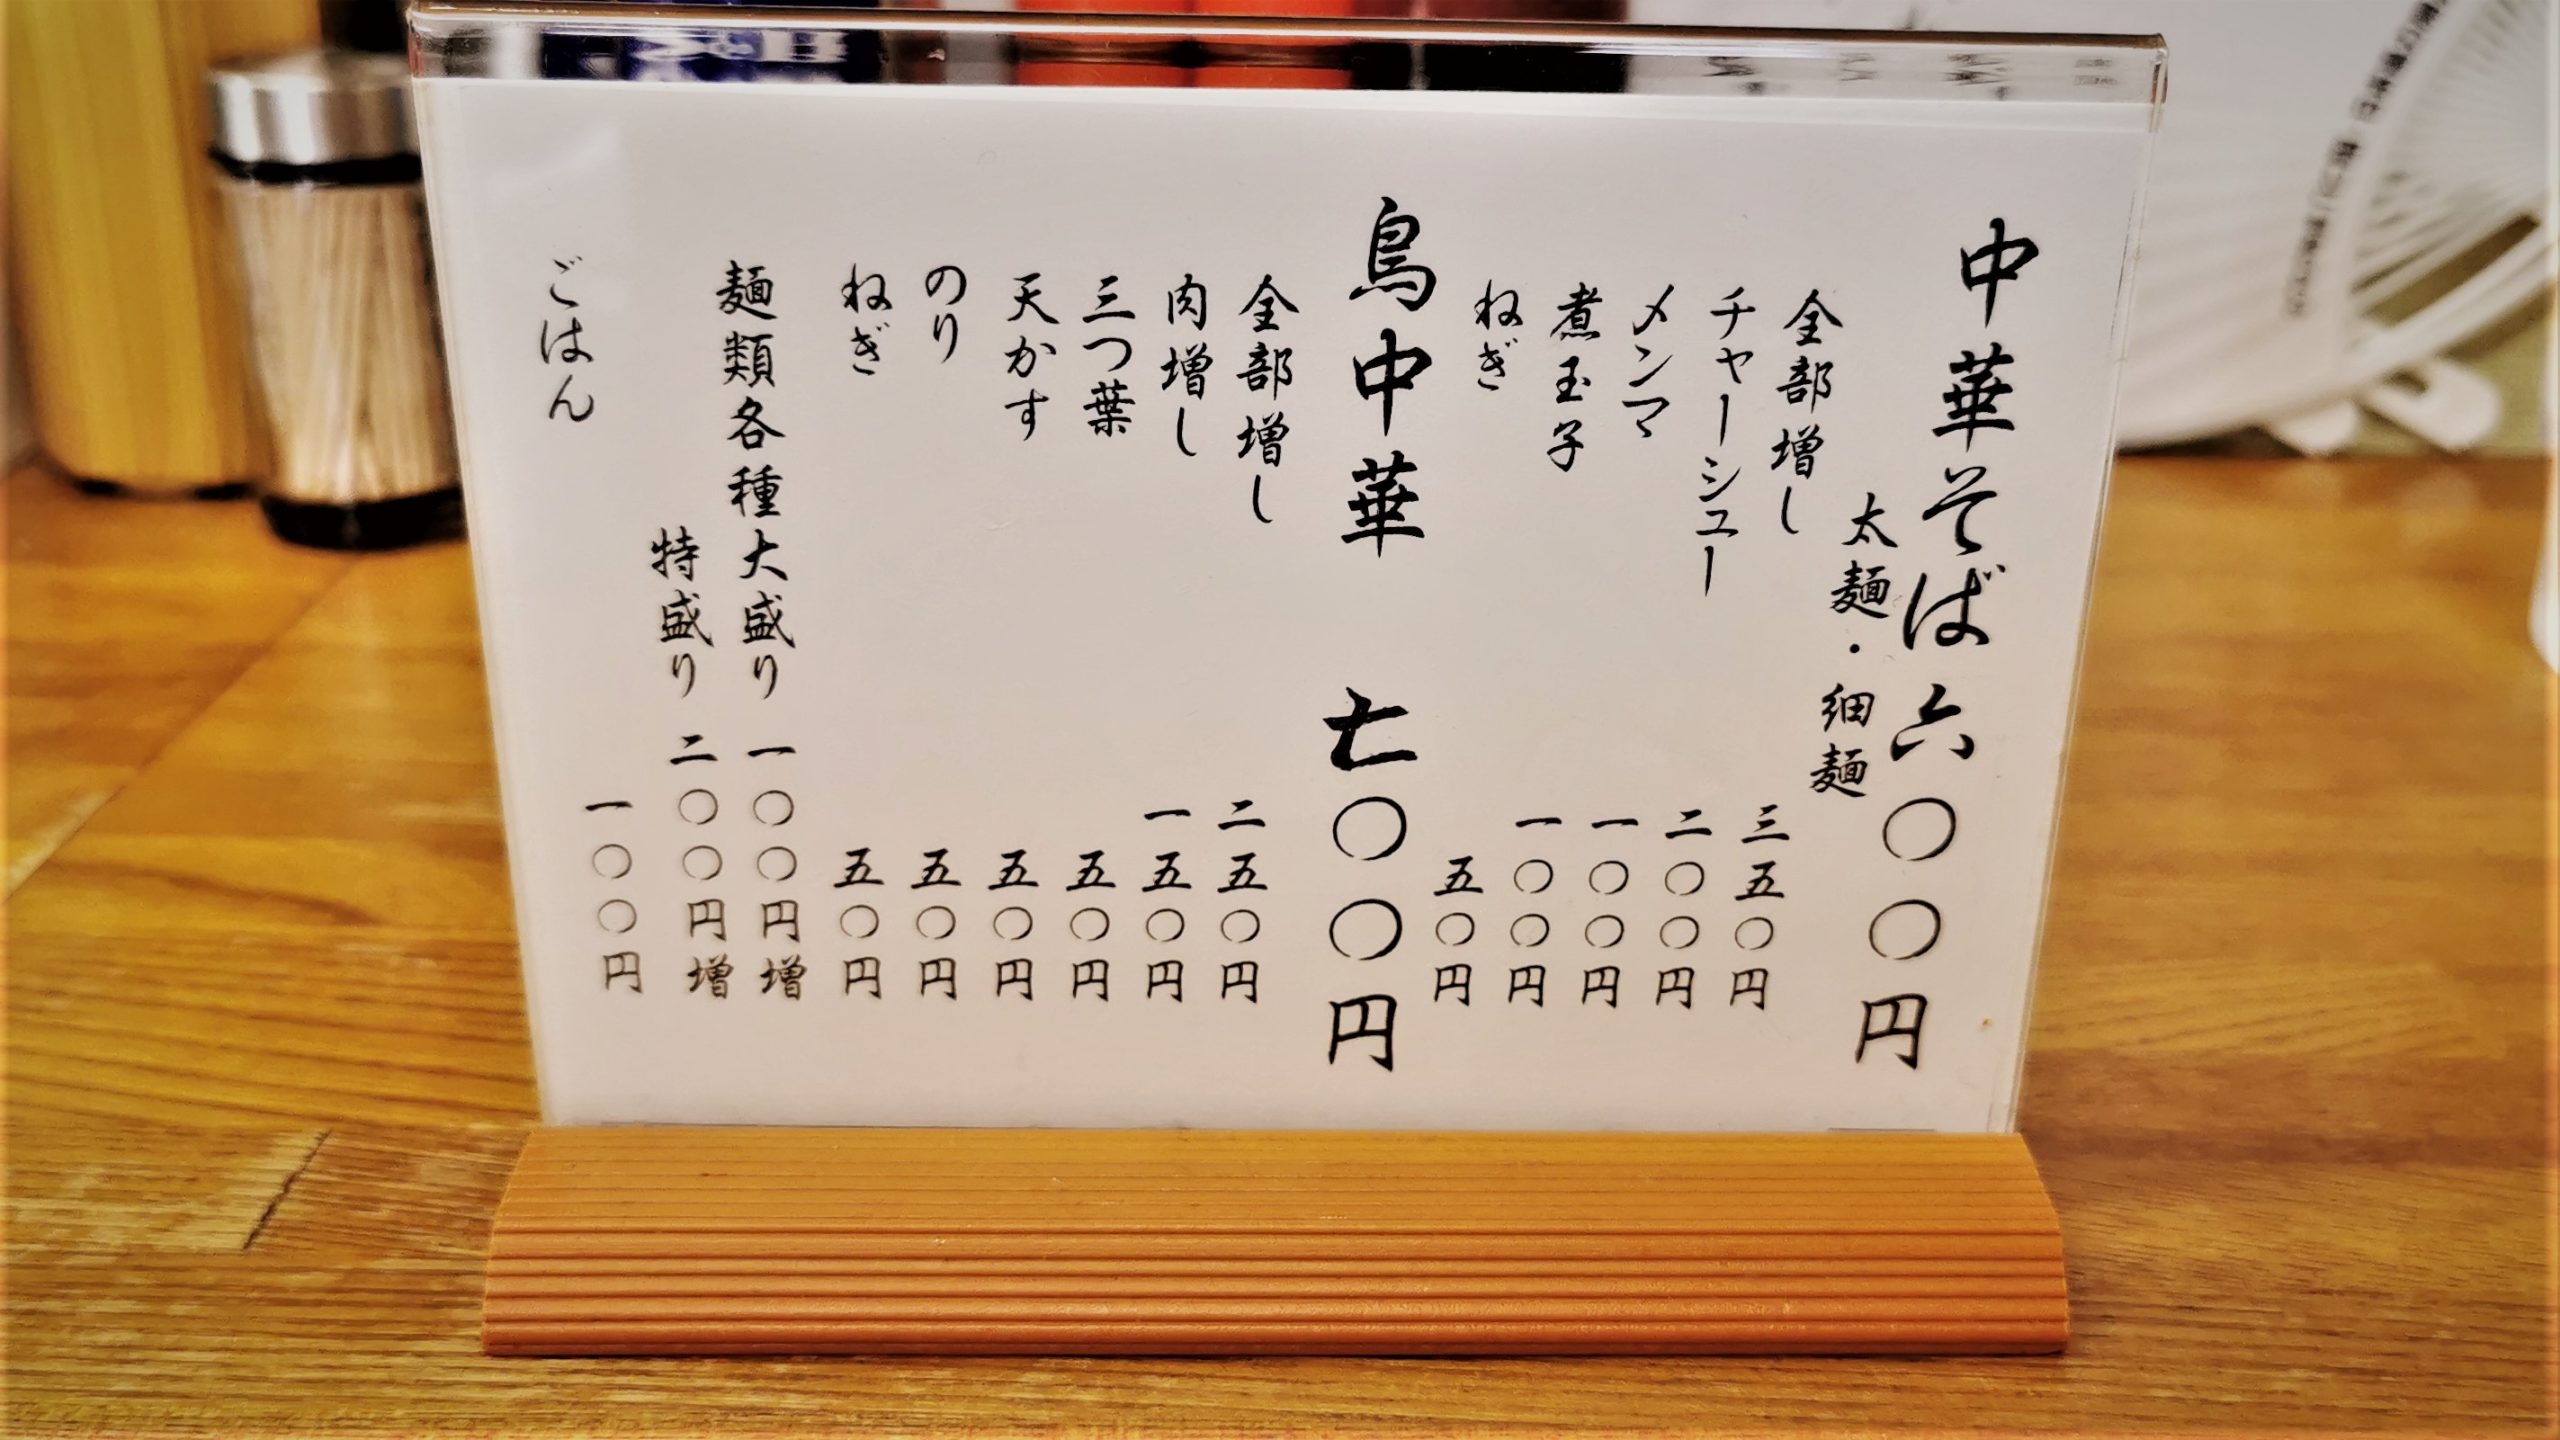 中華そば 六〇〇円
太麺・細麺
全部増し 三五〇円
チャーシュー 二〇〇円
メンマ 一〇〇円
煮玉子 一〇〇円
ねぎ 五〇円
鳥中華 七〇〇円
全部増し 二五〇円
肉増し 一五〇円
三つ葉 五〇円
天かす 五〇円
のり 五〇円
ねぎ 五〇円
麺類各種大盛り 一〇〇円増
特盛り 二〇〇円増
ごはん 一〇〇円